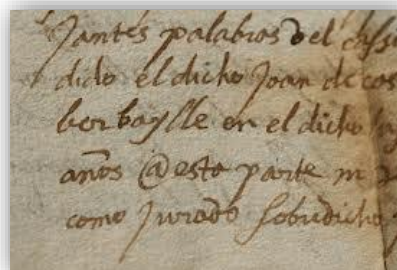 jantes palabras del
dido el dicho Joan de cas
borbaylle en el dicho
años @esta parte
como Jurado sobredicho